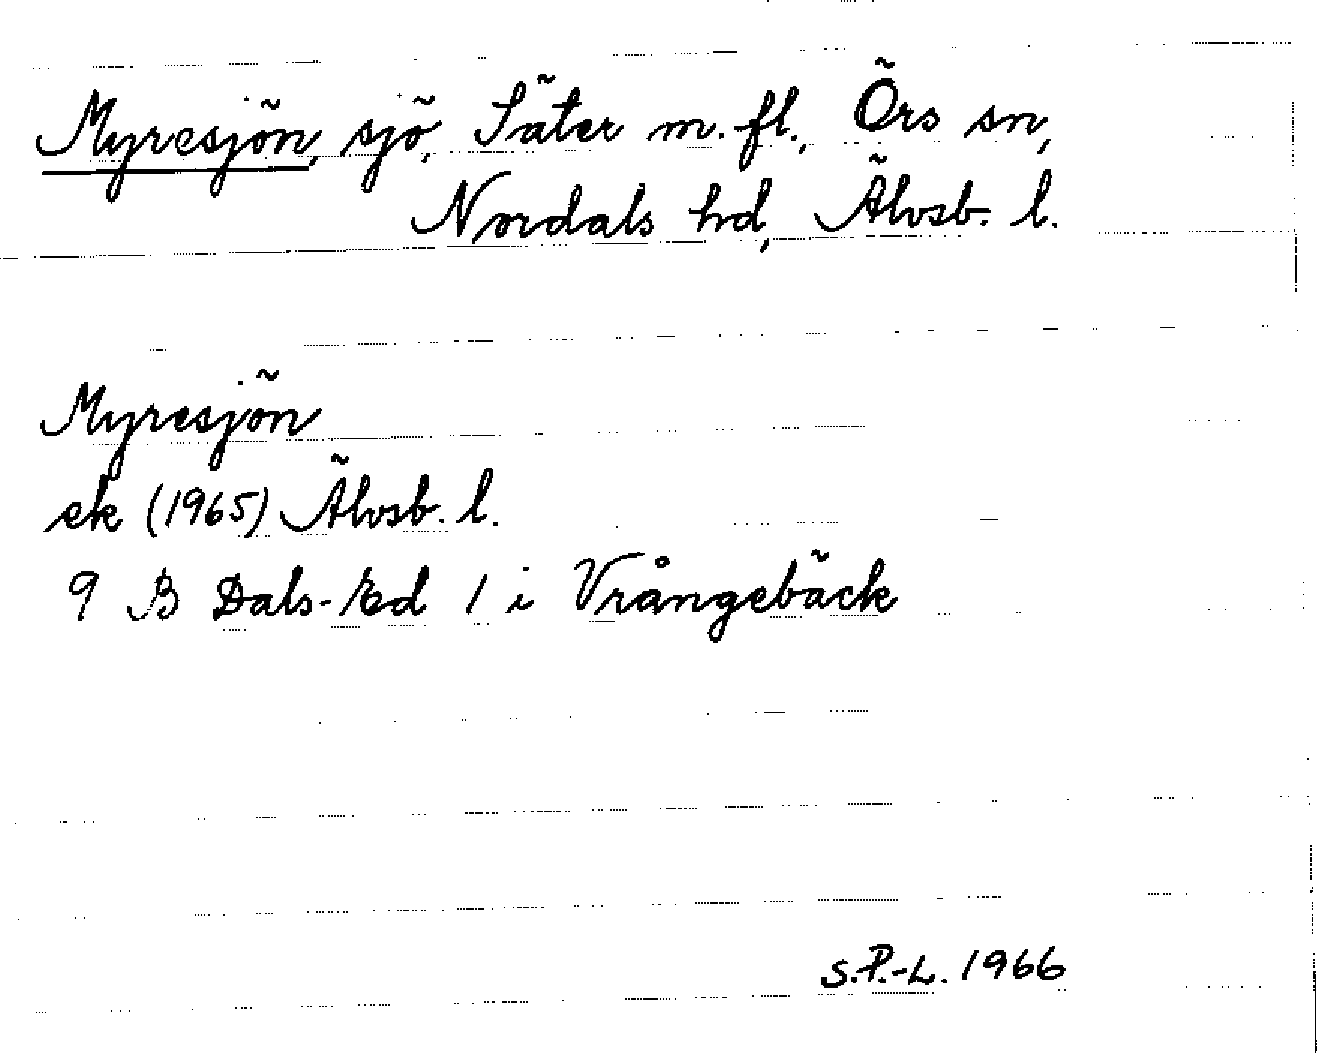 Myresjön, sjö, Säter m. fl., Örs sn,
Nordals hd, Älvsb. l.
Myresjön
ek (1965) Älvsb. l.
9 B Dals-Ed 1 i Vrångebäck
S.P.-L. 1966